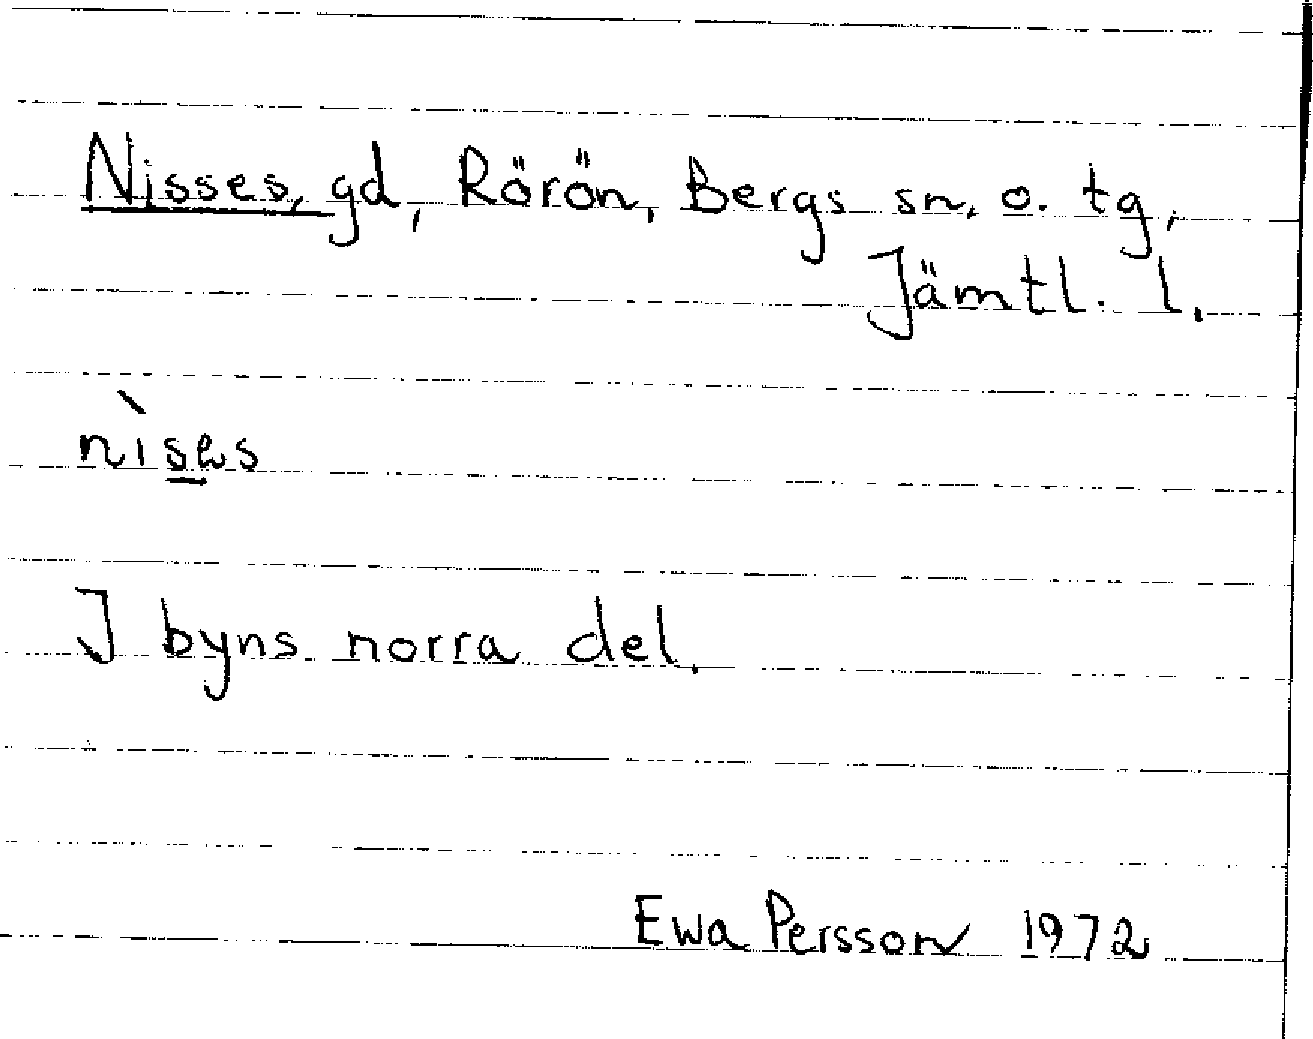 Nisses, gd, Rörön, Bergs sn. o. tg,
Jämtl. l.
nìses
I byns norra del.
Ewa Persson 1972